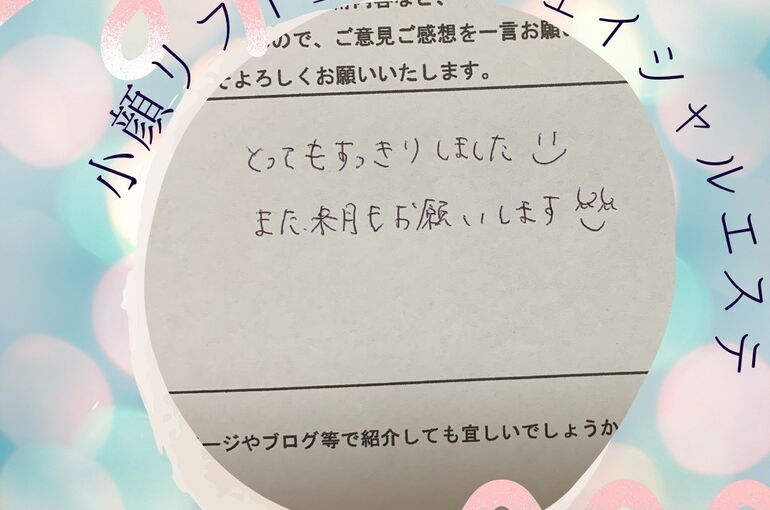 小顔リフト
ェイシャルエステ
ので、ご意見ご感想を一言お願い
よろしくお願いいたします。
とってもすっきりしました
また来月もお願いします
ージやブログ等で紹介しても宜しいでしょうか